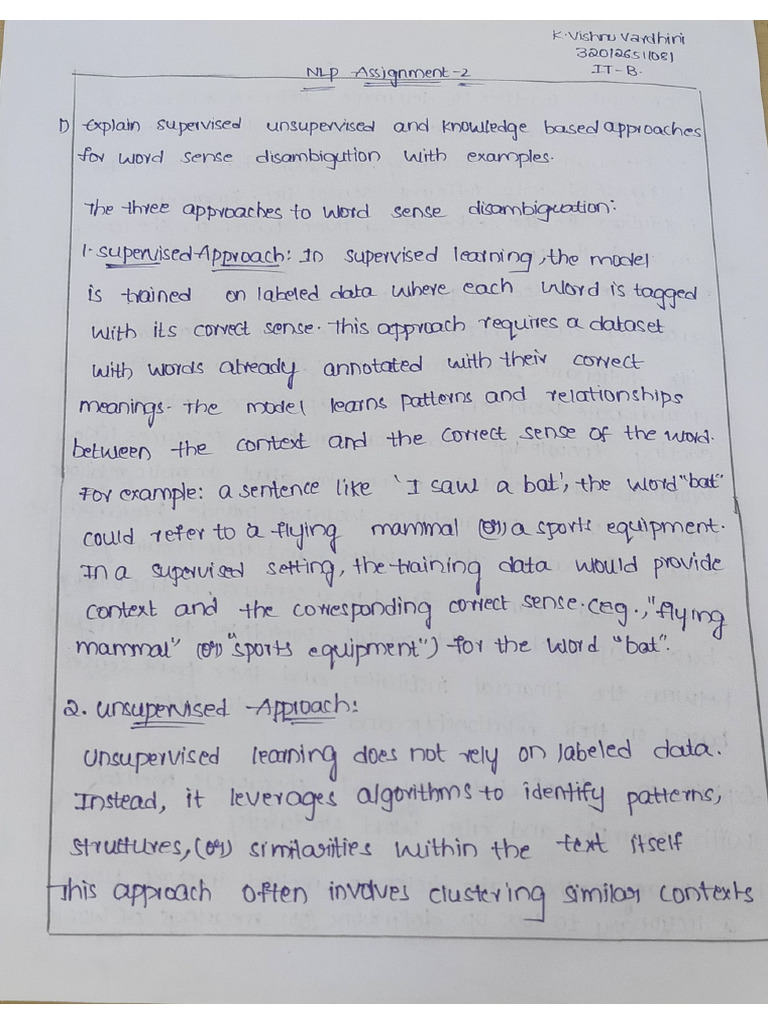 K. Vishnu Vardhini
320126511081
IT-B.
NLP Assignment-2
1) Explain supervised unsupervised and knowledge based approaches
for word sense disambigution with examples.
The three approaches to word sense disambiguation:
1. Supervised Approach: In supervised learning, the model
is trained on labeled data where each word is tagged
with its correct sense. This approach requires a dataset
with words already annotated with their correct
meanings. The model learns patterns and relationships
between the context and the correct sense of the word.
For example: a sentence like 'I saw a bat', the word "bat"
could refer to a flying mammal (or) a sports equipment.
In a supervised setting, the training data would provide
context and the corresponding correct sense. (eg., "flying
mammal" (or) "sports equipment") for the word "bat".
2. Unsupervised Approach:
Unsupervised learning does not rely on labeled data.
Instead, it leverages algorithms to identify patterns,
structures, (or) similarities within the text itself
This approach often involves clustering similar contexts